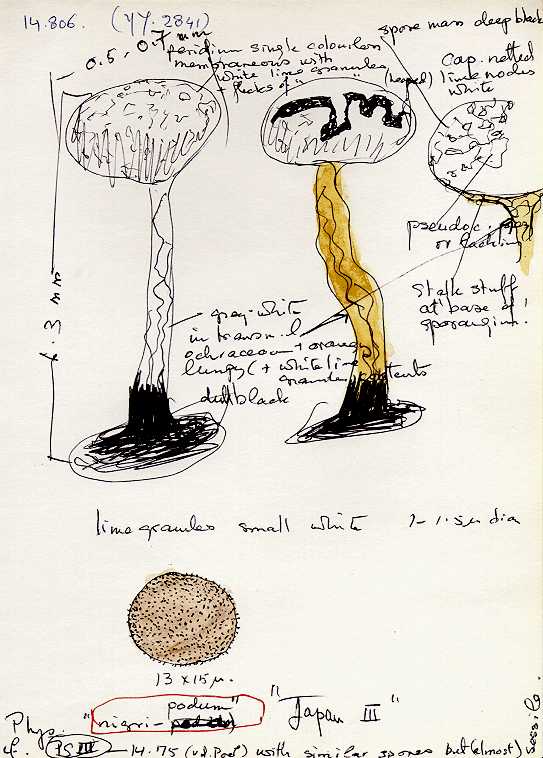 14.806. (YY. 2841)
0.5 - 0.7 mm
peridium single colourless
membraneous with
white lime granules
+ flecks of " " (heaped)
spore mass deep black
Cap. netted
lime nodes
white
pseudoc.
or lacking
Stalk stuff
at base of
sporangium!
1.3 mm
grey-white
in transm. l
ochraceous + orange
lumpy (+ white lime
granules contents
dull black
lime granules small white 1-1.5µ dia
13 x 15 µ.
Phys. "nigri-podum" "Japan III"
cf. PS III — 14.75 (v.d. Poel) with similar spores but (almost) sessile.